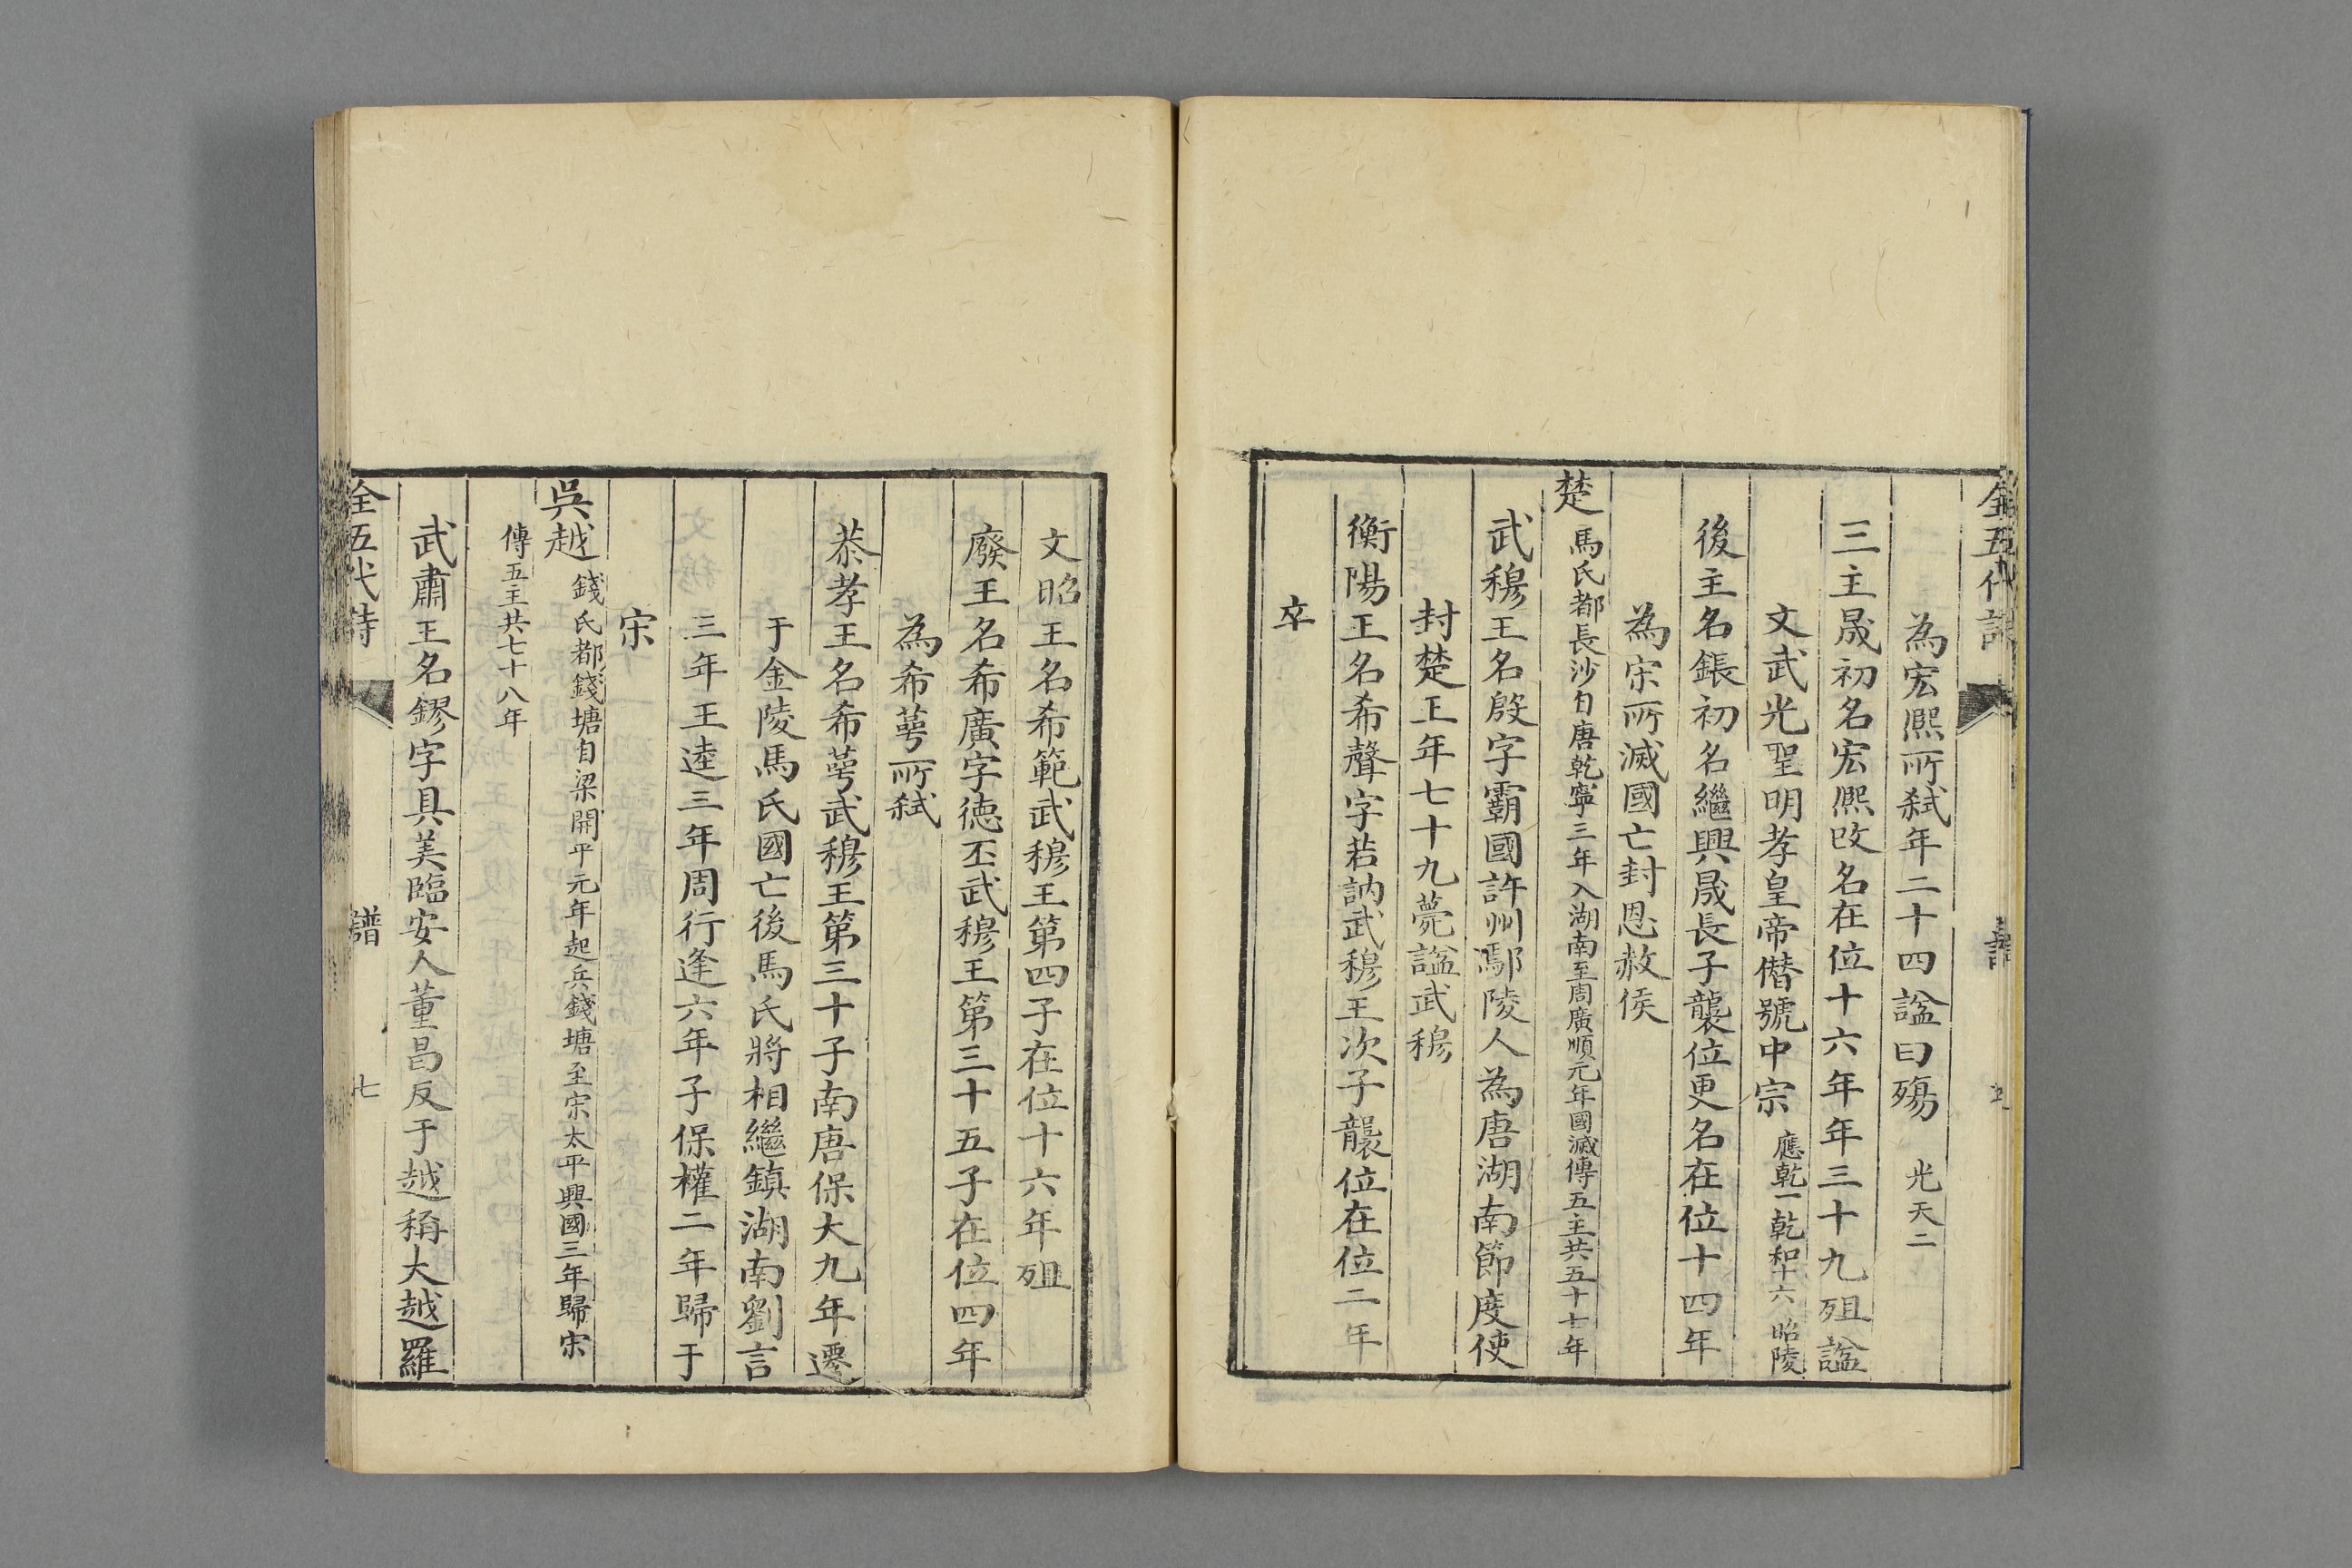 為宏熈所弑年二十四諡曰殤 光天二
三主晟初名宏熈改名在位十六年年三十九殂諡
文武光聖明孝皇帝僣號中宗 應乾一乾和十六 昭陵
後主名鋹初名繼興晟長子襲位更名在位十四年
為宋所滅國亡封恩赦侯
楚 馬氏都長沙自唐乾寧三年入湖南至周廣順元年國滅傳五主共五十七年
武穆王名殷字霸國許州鄢陵人為唐湖南節度使
封楚王年七十九薨諡武穆
衡陽王名希聲字若訥武穆王次子襲位在位二年
卒
文昭王名希範武穆王第四子在位十六年殂
廢王名希廣字德丕武穆王第三十五子在位四年
為希萼所弑
恭孝王名希萼武穆王第三十子南唐保大九年遷
于金陵馬氏國亡後馬氏將相繼鎮湖南劉言
三年王逵三年周行逢六年子保權二年歸于
宋
吳越 錢氏都錢塘自梁開平元年起兵錢塘至宋太平興國三年歸宋
傳五主共七十八年
武肅王名鏐字具美臨安人董昌反于越稱大越羅
全五代詩 譜 七